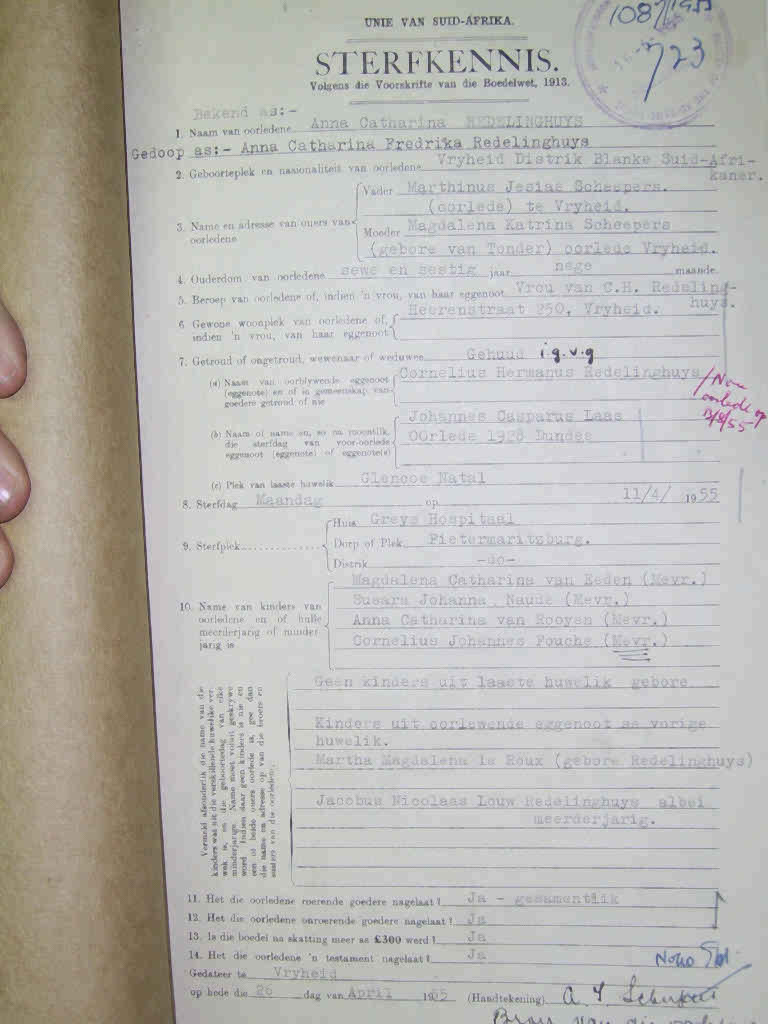 UNIE VAN SUID-AFRIKA.
1087/1955
723
STERFKENNIS.
Volgens die Voorskrifte van die Boedelwet, 1913.
Bekend as:-
1. Naam van oorledene Anna Catharina REDELINGHUYS
Gedoop as:- Anna Catharina Fredrika Redelinghuys
2. Geboorteplek en nasionaliteit van oorledene Vryheid Distrik Blanke Suid-Afri-
kaner.
3. Name en adresse van ouers van oorledene
Vader Marthinus Jesias Scheepers.
(oorlede) te Vryheid.
Moeder Magdalena Katrina Scheepers
(gebore van Tonder) oorlede Vryheid.
4. Ouderdom van oorledene sewe en sestig jaar nege maande.
5. Beroep van oorledene of, indien 'n vrou, van haar eggenoot Vrou van C.H. Redeling-
huys.
6. Gewone woonplek van oorledene of, indien 'n vrou, van haar eggenoot
Heerenstraat 250, Vryheid.
7. Getroud of ongetroud, wewenaar of weduwee Gehuud i.g.v.g
(a) Naam van oorblywende eggenoot (eggenote) en of in gemeenskap van goedere getroud of nie
Cornelius Hermanus Redelinghuys
/Nou oorlede op 13/8/55
(b) Naam of name en, so na moontlik, die sterfdag van voor-oorlede eggenoot (eggenote) of eggenote(s)
Johannes Casparus Laas
OOrlede 1928 Dundee
(c) Plek van laaste huwelik Glencoe Natal
8. Sterfdag Maandag op 11/4/ 1955
9. Sterfplek
Huis Greys Hospitaal
Dorp of Plek Pietermaritzburg.
Distrik -do-
10. Name van kinders van oorledene en of hulle meerderjarig of minderjarig is
Magdalena Catharina van Eeden (Mevr.)
Susara Johanna Naude (Mevr.)
Anna Catharina van Rooyen (Mevr.)
Cornelius Johannes Fouche (Mevr.)
Vermeld afsonderlik die name van die
kinders wat uit die verskillende huwelike ver-
wek is, en die geboortedag van elke
minderjarige. Name moet voluit geskrywe
word. Indien daar geen kinders is nie en
een of beide ouers oorlede is, gee dan
die name en adresse op van die broers en
susters van die oorledene.
Geen kinders uit laaste huwelik gebore
Kinders uit oorlewende eggenoot se vorige
huwelik.
Martha Magdalena le Roux (gebore Redelinghuys)
Jacobus Nicolaas Louw Redelinghuys albei
meerderjarig.
11. Het die oorledene roerende goedere nagelaat? Ja - gesamentlik
12. Het die oorledene onroerende goedere nagelaat? Ja
13. Is die boedel na skatting meer as £300 werd? Ja
14. Het die oorledene 'n testament nagelaat? Ja
Gedateer te Vryheid
op hede die 26 dag van April 1955 (Handtekening) A. J.